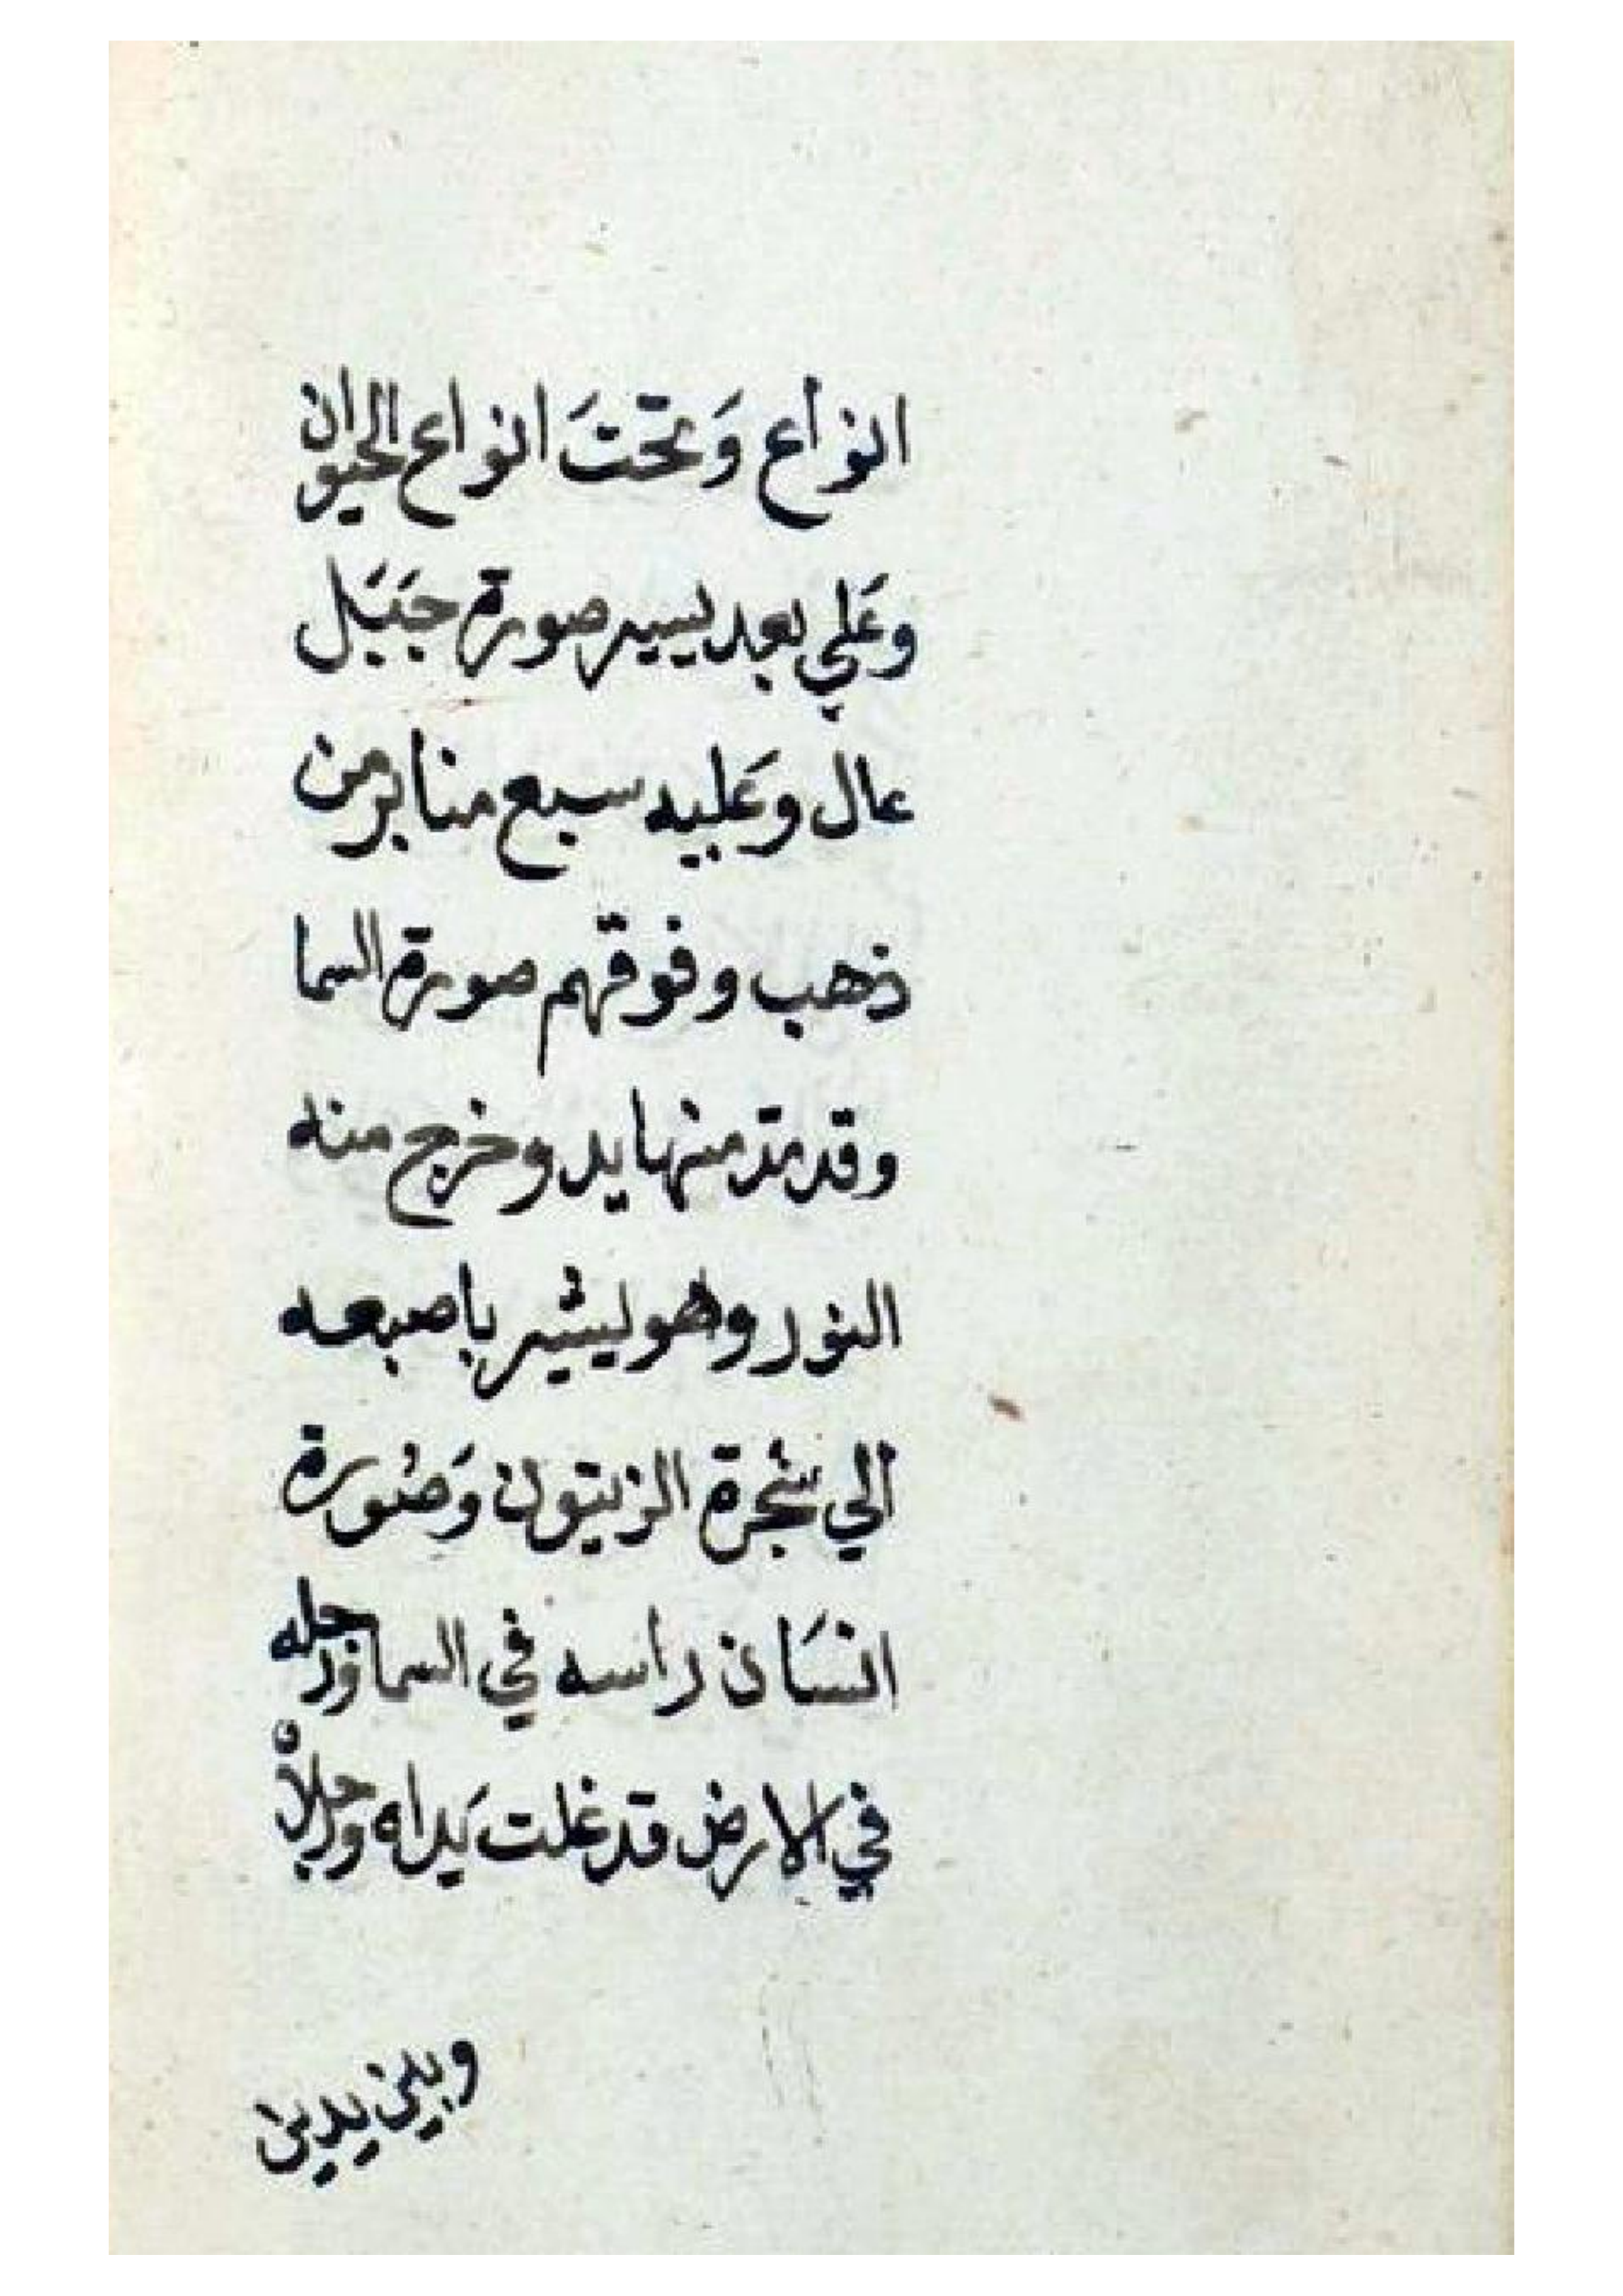 انواع وَتحتَ انواع الحيوان
وعَلي بعد يسير صورة جَبَل
عال وعَليه سبع منابر من
ذهب وفوقهم صورة السما
وقد مدّ منها يد وخرج منه
النور وهو يشير باصبعه
الي شجرة الزيتون وَصُورة
انسَان راسه في السما ورجله
في الارض قد غلت يَداه ورجلاْه
وبين يدين